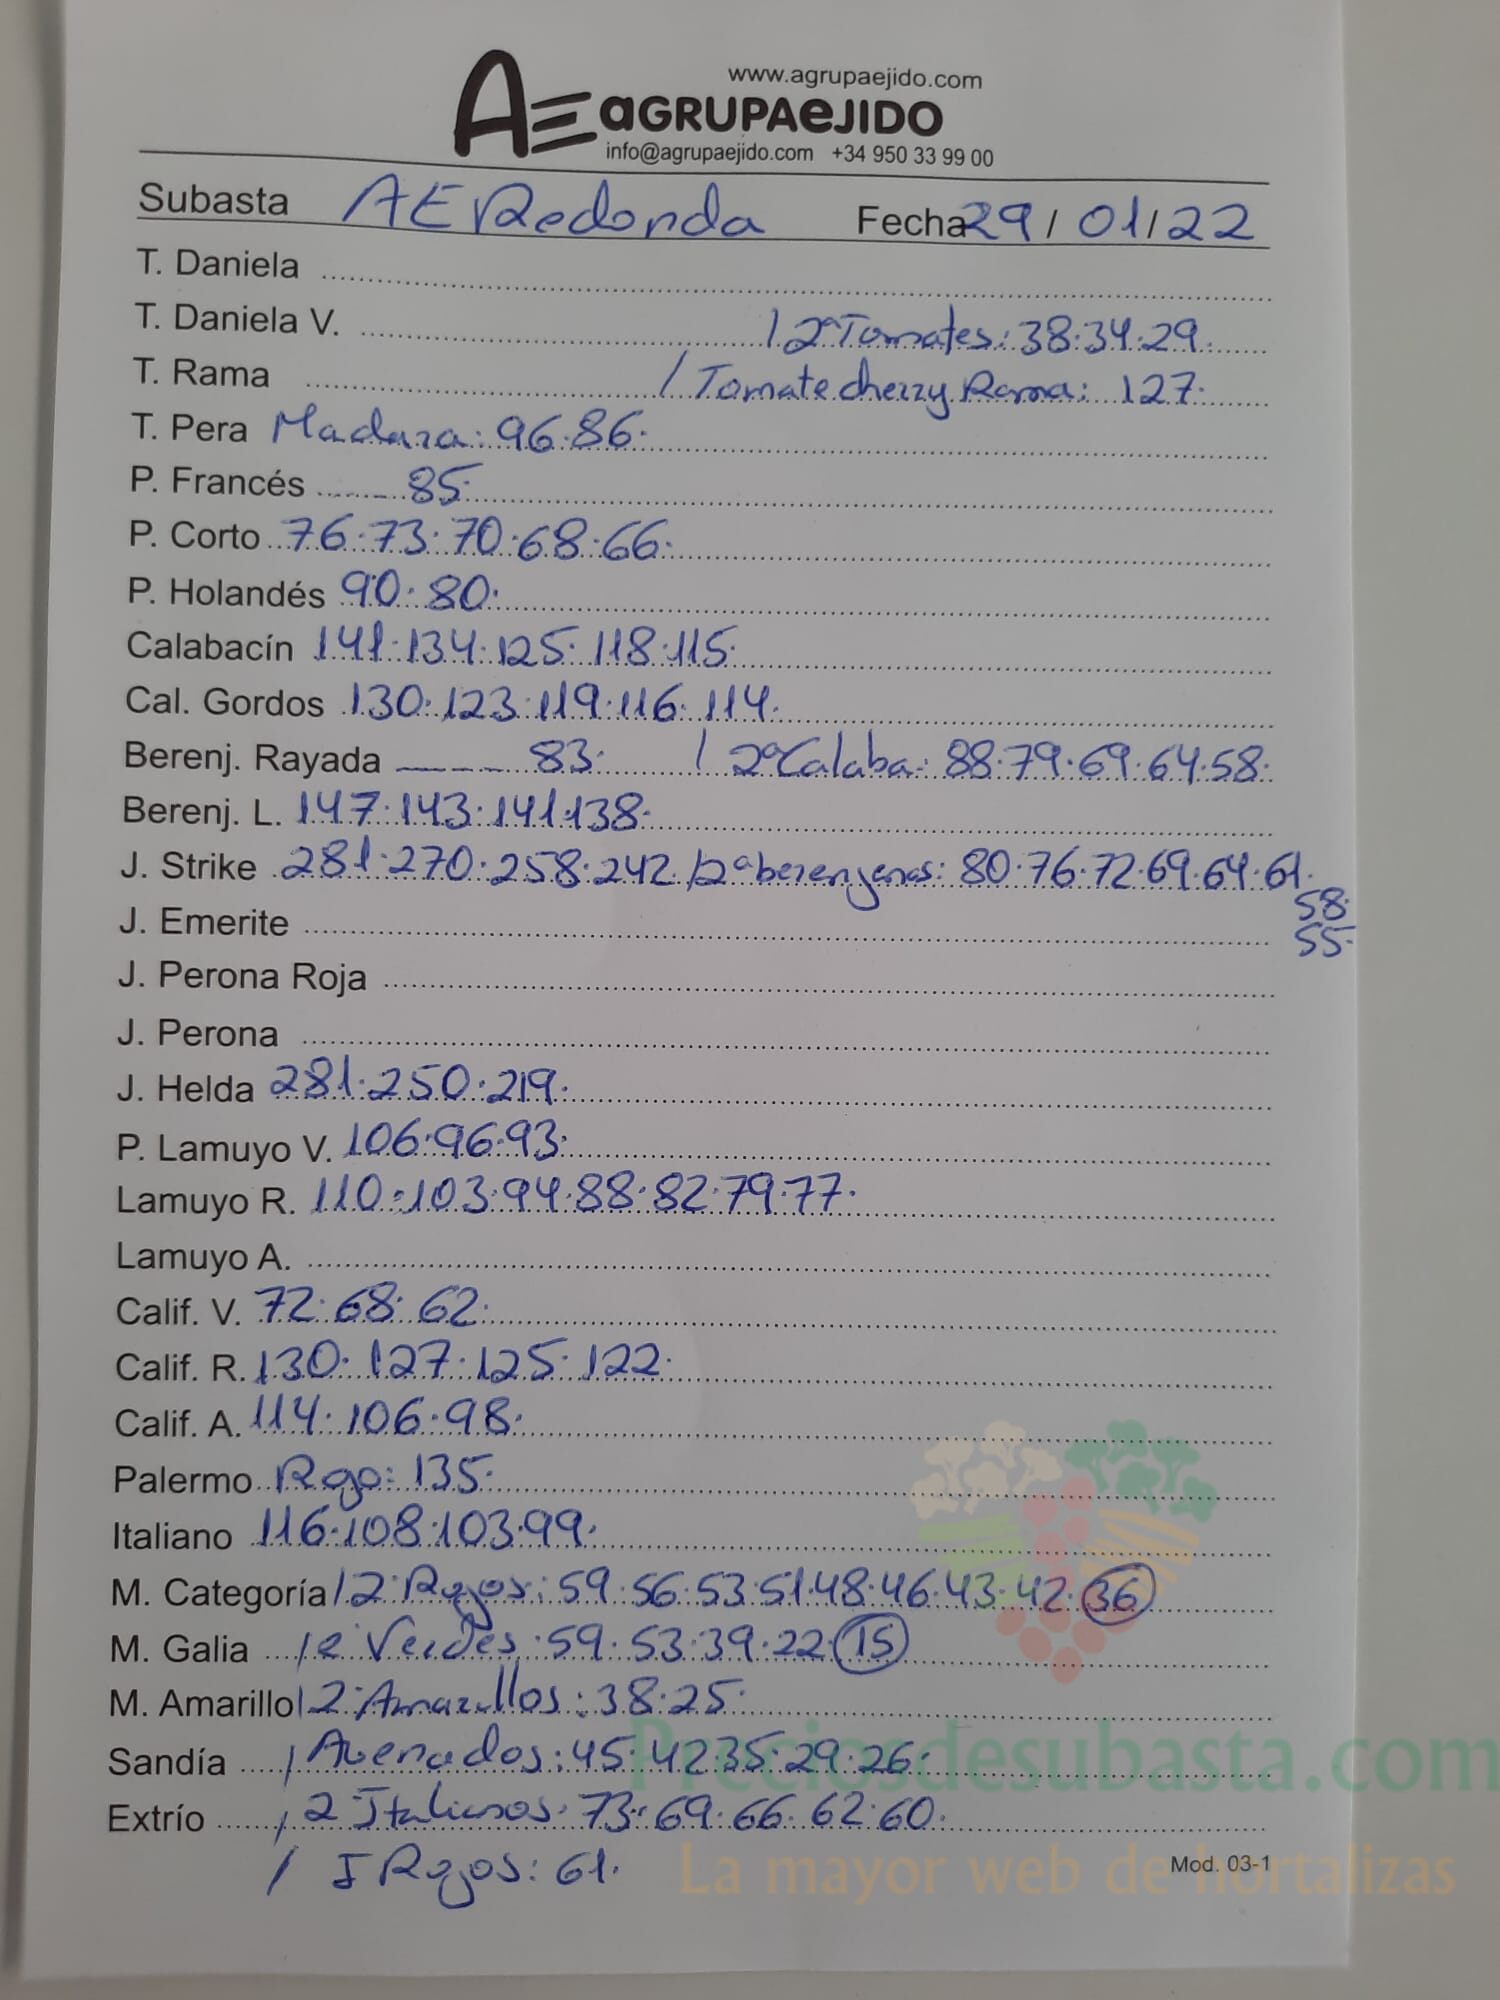 www.agrupaejido.com
AE aGRUPAeJIDO
info@agrupaejido.com +34 950 33 99 00
Subasta AE Redonda Fecha 29/01/22
T. Daniela
T. Daniela V. / 2ª Tomates: 38·34·29
T. Rama / Tomate cherry Rama: 127·
T. Pera Madura: 96·86·
P. Francés 85·
P. Corto 76·73·70·68·66·
P. Holandés 90·80·
Calabacín 141·134·125·118·115·
Cal. Gordos 130·123·119·116·114·
Berenj. Rayada 83· / 2ª Calaba: 88·79·69·64·58·
Berenj. L. 147·143·141·138·
J. Strike 281·270·258·242 / 2ª berenjenas: 80·76·72·69·64·61·
58·
J. Emerite
55·
J. Perona Roja
J. Perona
J. Helda 281·250·219·
P. Lamuyo V. 106·96·93·
Lamuyo R. 110·103·94·88·82·79·77·
Lamuyo A.
Calif. V. 72·68·62·
Calif. R. 130·127·125·122·
Calif. A. 114·106·98·
Palermo Rojo: 135·
Italiano 116·108·103·99·
M. Categoría / 2 Rojos: 59·56·53·51·48·46·43·42·36
M. Galia / 2 Verdes: 59·53·39·22·15
M. Amarillo / 2 Amarillos: 38·25·
Sandía / Avenados: 45·42·35·29·26·
Preciosdesubasta.com
Extrío / 2 Italianos: 73·69·66·62·60·
/ I Rojos: 61·
La mayor web de hortalizas
Mod. 03-1